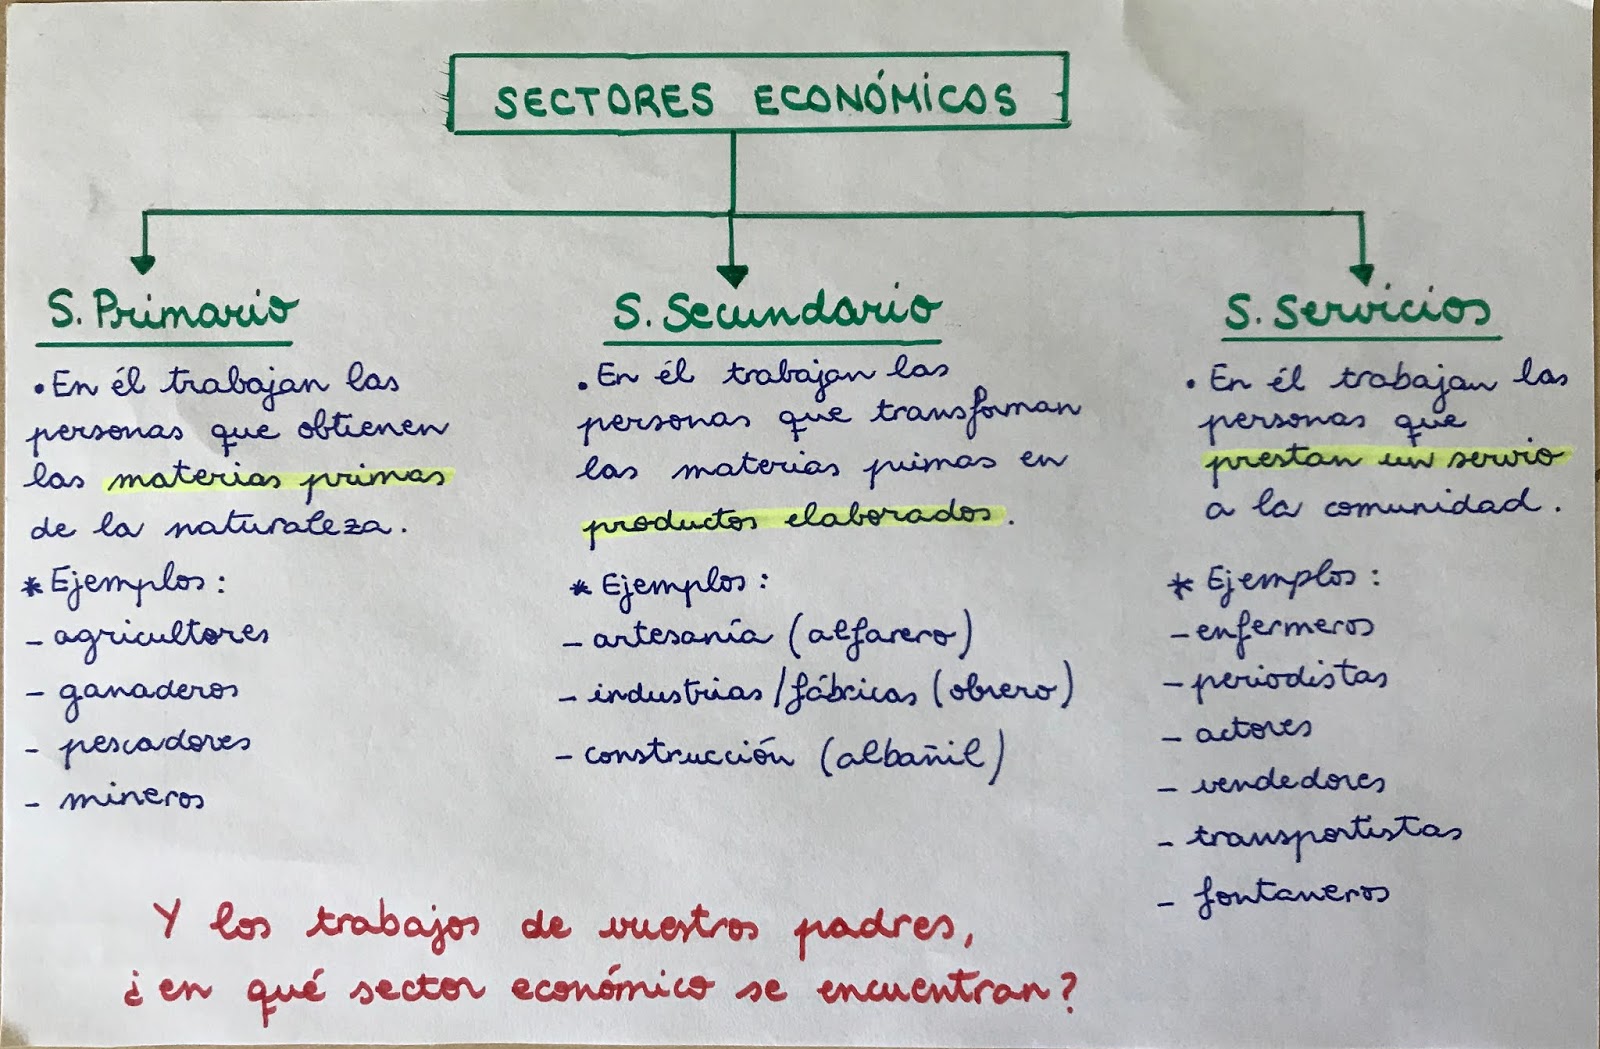 SECTORES ECONÓMICOS
S. Primario
• En él trabajan las
personas que obtienen
las materias primas
de la naturaleza.
* Ejemplos:
- agricultores
- ganaderos
- pescadores
- mineros
S. Secundario
• En él trabajan las
personas que transforman
las materias primas en
productos elaborados.
* Ejemplos:
- artesanía (alfarero)
- industrias/fábricas (obrero)
- construcción (albañil)
S. Servicios
• En él trabajan las
personas que
prestan un servio
a la comunidad.
* Ejemplos:
- enfermeros
- periodistas
- actores
- vendedores
- transportistas
- fontaneros
Y los trabajos de vuestros padres,
¿en qué sector económico se encuentran?